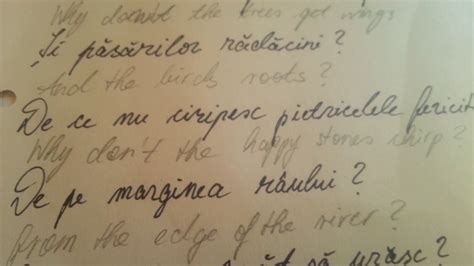 Why doesn't the trees get wings
Și păsărilor rădăcini?
And the birds roots?
De ce nu ciripesc pietricelele fericit
Why don't the happy stones chirp?
De pe marginea râului?
From the edge of the river?
să urăsc?